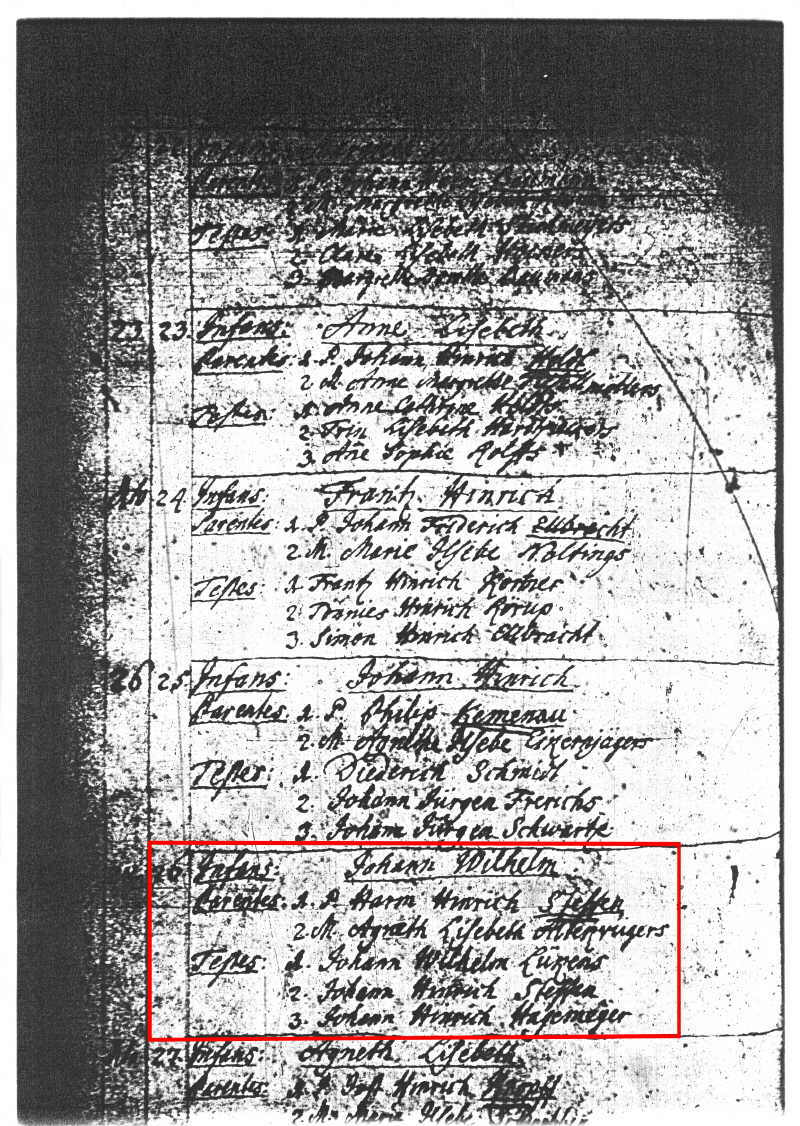 Infans:
Parentes 1. P. Johann
2. M. Margreth
Testes: 1. Marie Lisebeth
2. Clare Lisebeth
3. Margreth
23. 23. Infans: Anne Lisebeth
Parentes 1. P. Johann Hinrich Holdt
2. M. Anne Margrethe
Testes: 1. Anne Cathrine
2. Trin Lisebeth
3. Ane Sophie Rolffs
24. Infans: Frantz Hinrich
Parentes: 1. P. Johann Friderich Ellbracht
2. M. Marie Ilsebe Noltings
Testes: 1. Frantz Hinrich Körtner
2. Tönnies Hinrich Körup
3. Simon Hinrich Ellbracht
26 25. Infans: Johann Hinrich
Parentes 1. P. Philip Kemenau
2. M. Agnethe Ilsebe Eikenjagers
Testes: 1. Diederich Schmidt
2. Johann Jürgen Frerichs
3. Johann Jürgen Schwartze
26. Infans: Johann Wilhelm
Parentes: 1. P. Harm Hinrich Steffen
2. M. Agneth Lisebeth
Testes: 1. Johann Wilhelm Lükens
2. Johann Hinrich Steffen
3. Johann Hinrich Hagemeger
27. Infans: Agneth Lisebeth
Parentes: 1. P. Hinrich
2. M. Marie Ilsebe